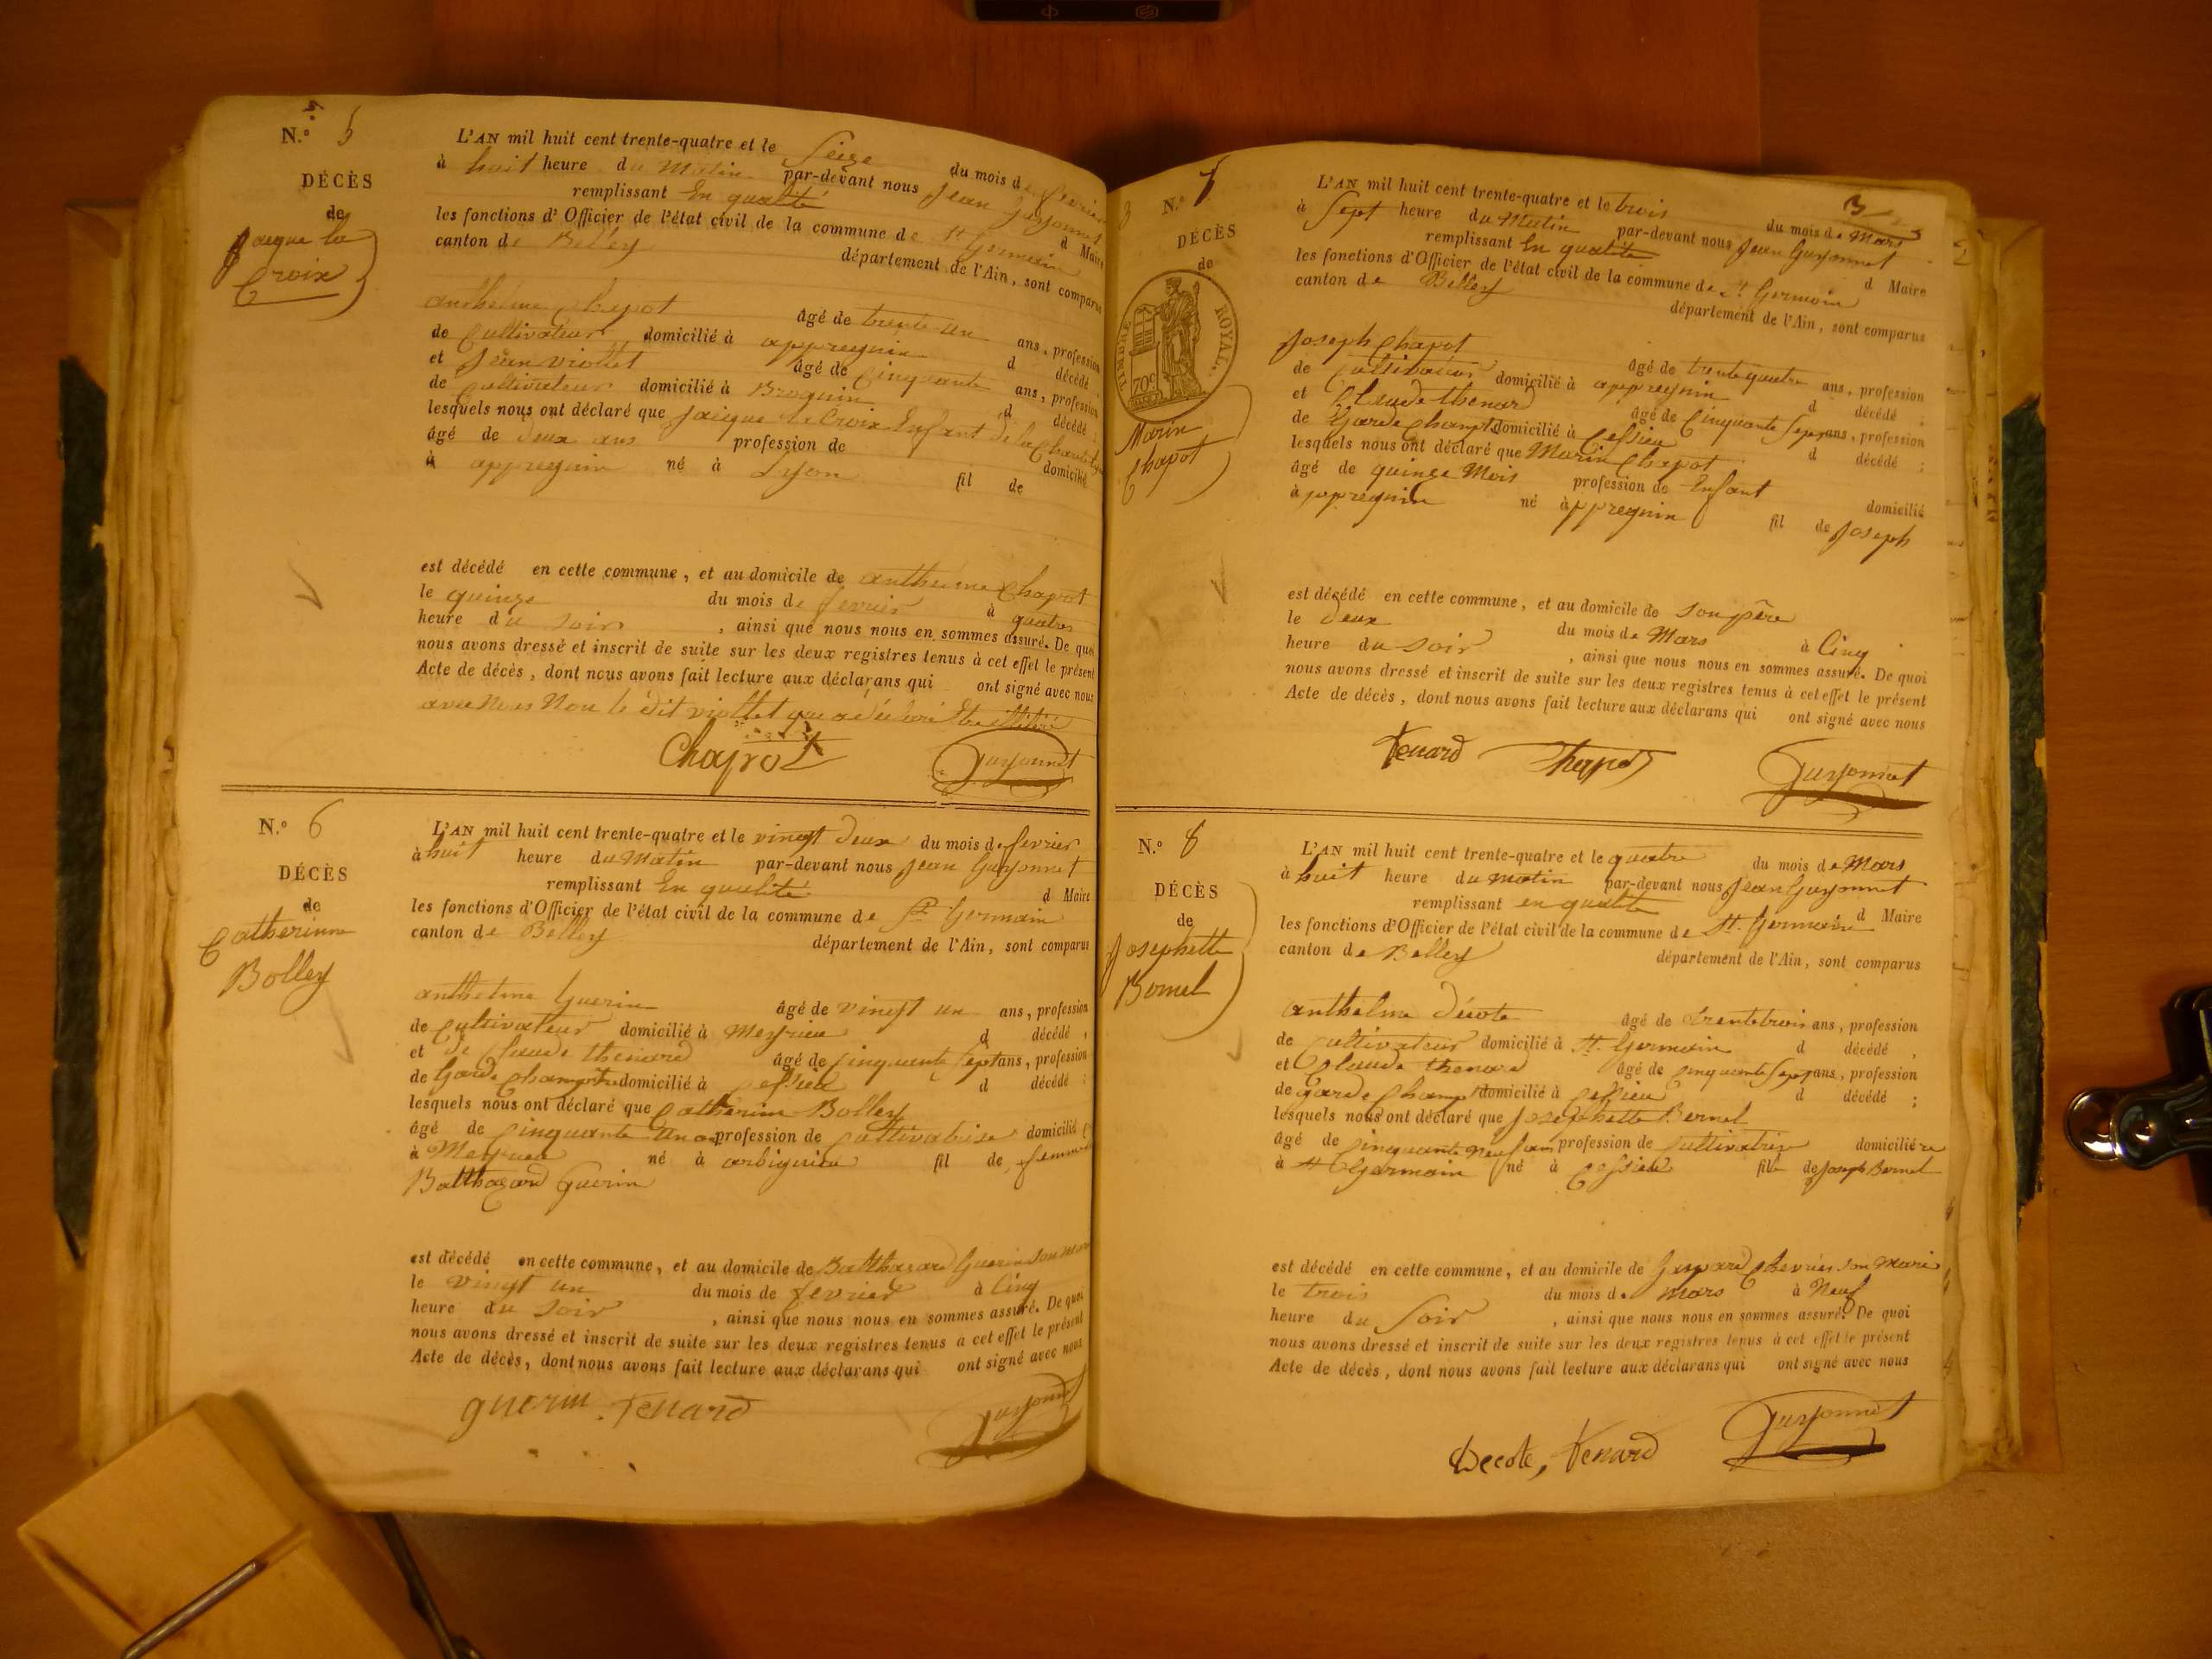 N.° 5
DÉCÈS
de
Jacque la
Croix
L'AN mil huit cent trente-quatre et le Seize du mois de fevrier
à huit heure du Matin par-devant nous Jean Guyonnet
remplissant En qualité d Maire
les fonctions d'Officier de l'état civil de la commune de St Germain
canton de Belley département de l'Ain, sont comparus
anthelme Chapot âgé de trente un ans, profession
de Cultivateur domicilié à appregnin d décédé
et Jean viollet âgé de Cinquante ans, profession
de Cultivateur domicilié à Brognin d décédé ;
lesquels nous ont déclaré que Jacque la Croix Enfant de la
âgé de deux ans profession de domicilié
à appregnin né à Lyon fil de
est décédé en cette commune, et au domicile de anthelme Chapot
le quinze du mois de fevrier à quatre
heure du soir , ainsi que nous nous en sommes assuré. De quoi
nous avons dressé et inscrit de suite sur les deux registres tenus à cet effet le présent
Acte de décès, dont nous avons fait lecture aux déclarans qui ont signé avec nous
avec Nous Non le dit viollet que a déclaré Etre
Chapot Guyonnet
N.° 6
DÉCÈS
de
Catherinne
Bolley
L'AN mil huit cent trente-quatre et le vingt deux du mois de fevrier
à huit heure du Matin par-devant nous Jean Guyonnet
remplissant En qualité d Maire
les fonctions d'Officier de l'état civil de la commune de St Germain
canton de Belley département de l'Ain, sont comparus
anthelme Guerin âgé de vingt un ans, profession
de Cultivateur domicilié à Meyrieu d décédé ,
et de Claude thenard âgé de Cinquante Sept ans, profession
de Garde Champtre domicilié à Cessieu d décédé ;
lesquels nous ont déclaré que Catherine Bolley
âgé de Cinquante profession de Cultivatrise domicilié
à Meyrieu né à arbignieu fil de femme
Balthazard Guerin
est décédé en cette commune, et au domicile de Balthazard Guerin Son mari
le vingt un du mois de fevrier à Cinq
heure du soir , ainsi que nous nous en sommes assuré. De quoi
nous avons dressé et inscrit de suite sur les deux registres tenus à cet effet le présent
Acte de décès, dont nous avons fait lecture aux déclarans qui ont signé avec nous
guerin tenard Guyonnet
3
N.° 7
DÉCÈS
de
TIMBRE ROYAL.
70c
Marin
Chapot
L'AN mil huit cent trente-quatre et le trois du mois de Mars
à Sept heure du Matin par-devant nous Jean Guyonnet
remplissant En qualité d Maire
les fonctions d'Officier de l'état civil de la commune de St Germain
canton de Belley département de l'Ain, sont comparus
Joseph Chapot âgé de trente quatre ans, profession
de Cultivateur domicilié à appregnin d décédé ,
et Claude thenard âgé de Cinquante Sept ans, profession
de Garde Champt domicilié à Cessieu d décédé ;
lesquels nous ont déclaré que Marin Chapot
âgé de quinze Mois profession de Enfant domicilié
à appregnin né à appregnin fil de Joseph
est décédé en cette commune, et au domicile de Son père
le deux du mois de Mars à Cinq
heure du soir , ainsi que nous nous en sommes assuré. De quoi
nous avons dressé et inscrit de suite sur les deux registres tenus à cet effet le présent
Acte de décès, dont nous avons fait lecture aux déclarans qui ont signé avec nous
tenard Chapot Guyonnet
N.° 8
DÉCÈS
de
Josephette
Bornel
L'AN mil huit cent trente-quatre et le quatre du mois de Mars
à huit heure du matin par-devant nous Jean Guyonnet
remplissant en qualité d Maire
les fonctions d'Officier de l'état civil de la commune de St. Germain
canton de Belley département de l'Ain, sont comparus
anthelme décote âgé de trente trois ans, profession
de Cultivateur domicilié à St. Germain d décédé ,
et Claude thenard âgé de Cinquante Sept ans, profession
de garde Champt domicilié à Cessieu d décédé ;
lesquels nous ont déclaré que Josephette Bernel
âgé de Cinquante neuf ans profession de Cultivatris domiciliére
à St Germain né à Cessieu fille de Joseph Bernel
est décédé en cette commune, et au domicile de Gaspard Chevrier son mari
le trois du mois de Mars à Neuf
heure du Soir , ainsi que nous nous en sommes assuré. De quoi
nous avons dressé et inscrit de suite sur les deux registres tenus à cet effet le présent
Acte de décès, dont nous avons fait lecture aux déclarans qui ont signé avec nous
Decote, tenard Guyonnet